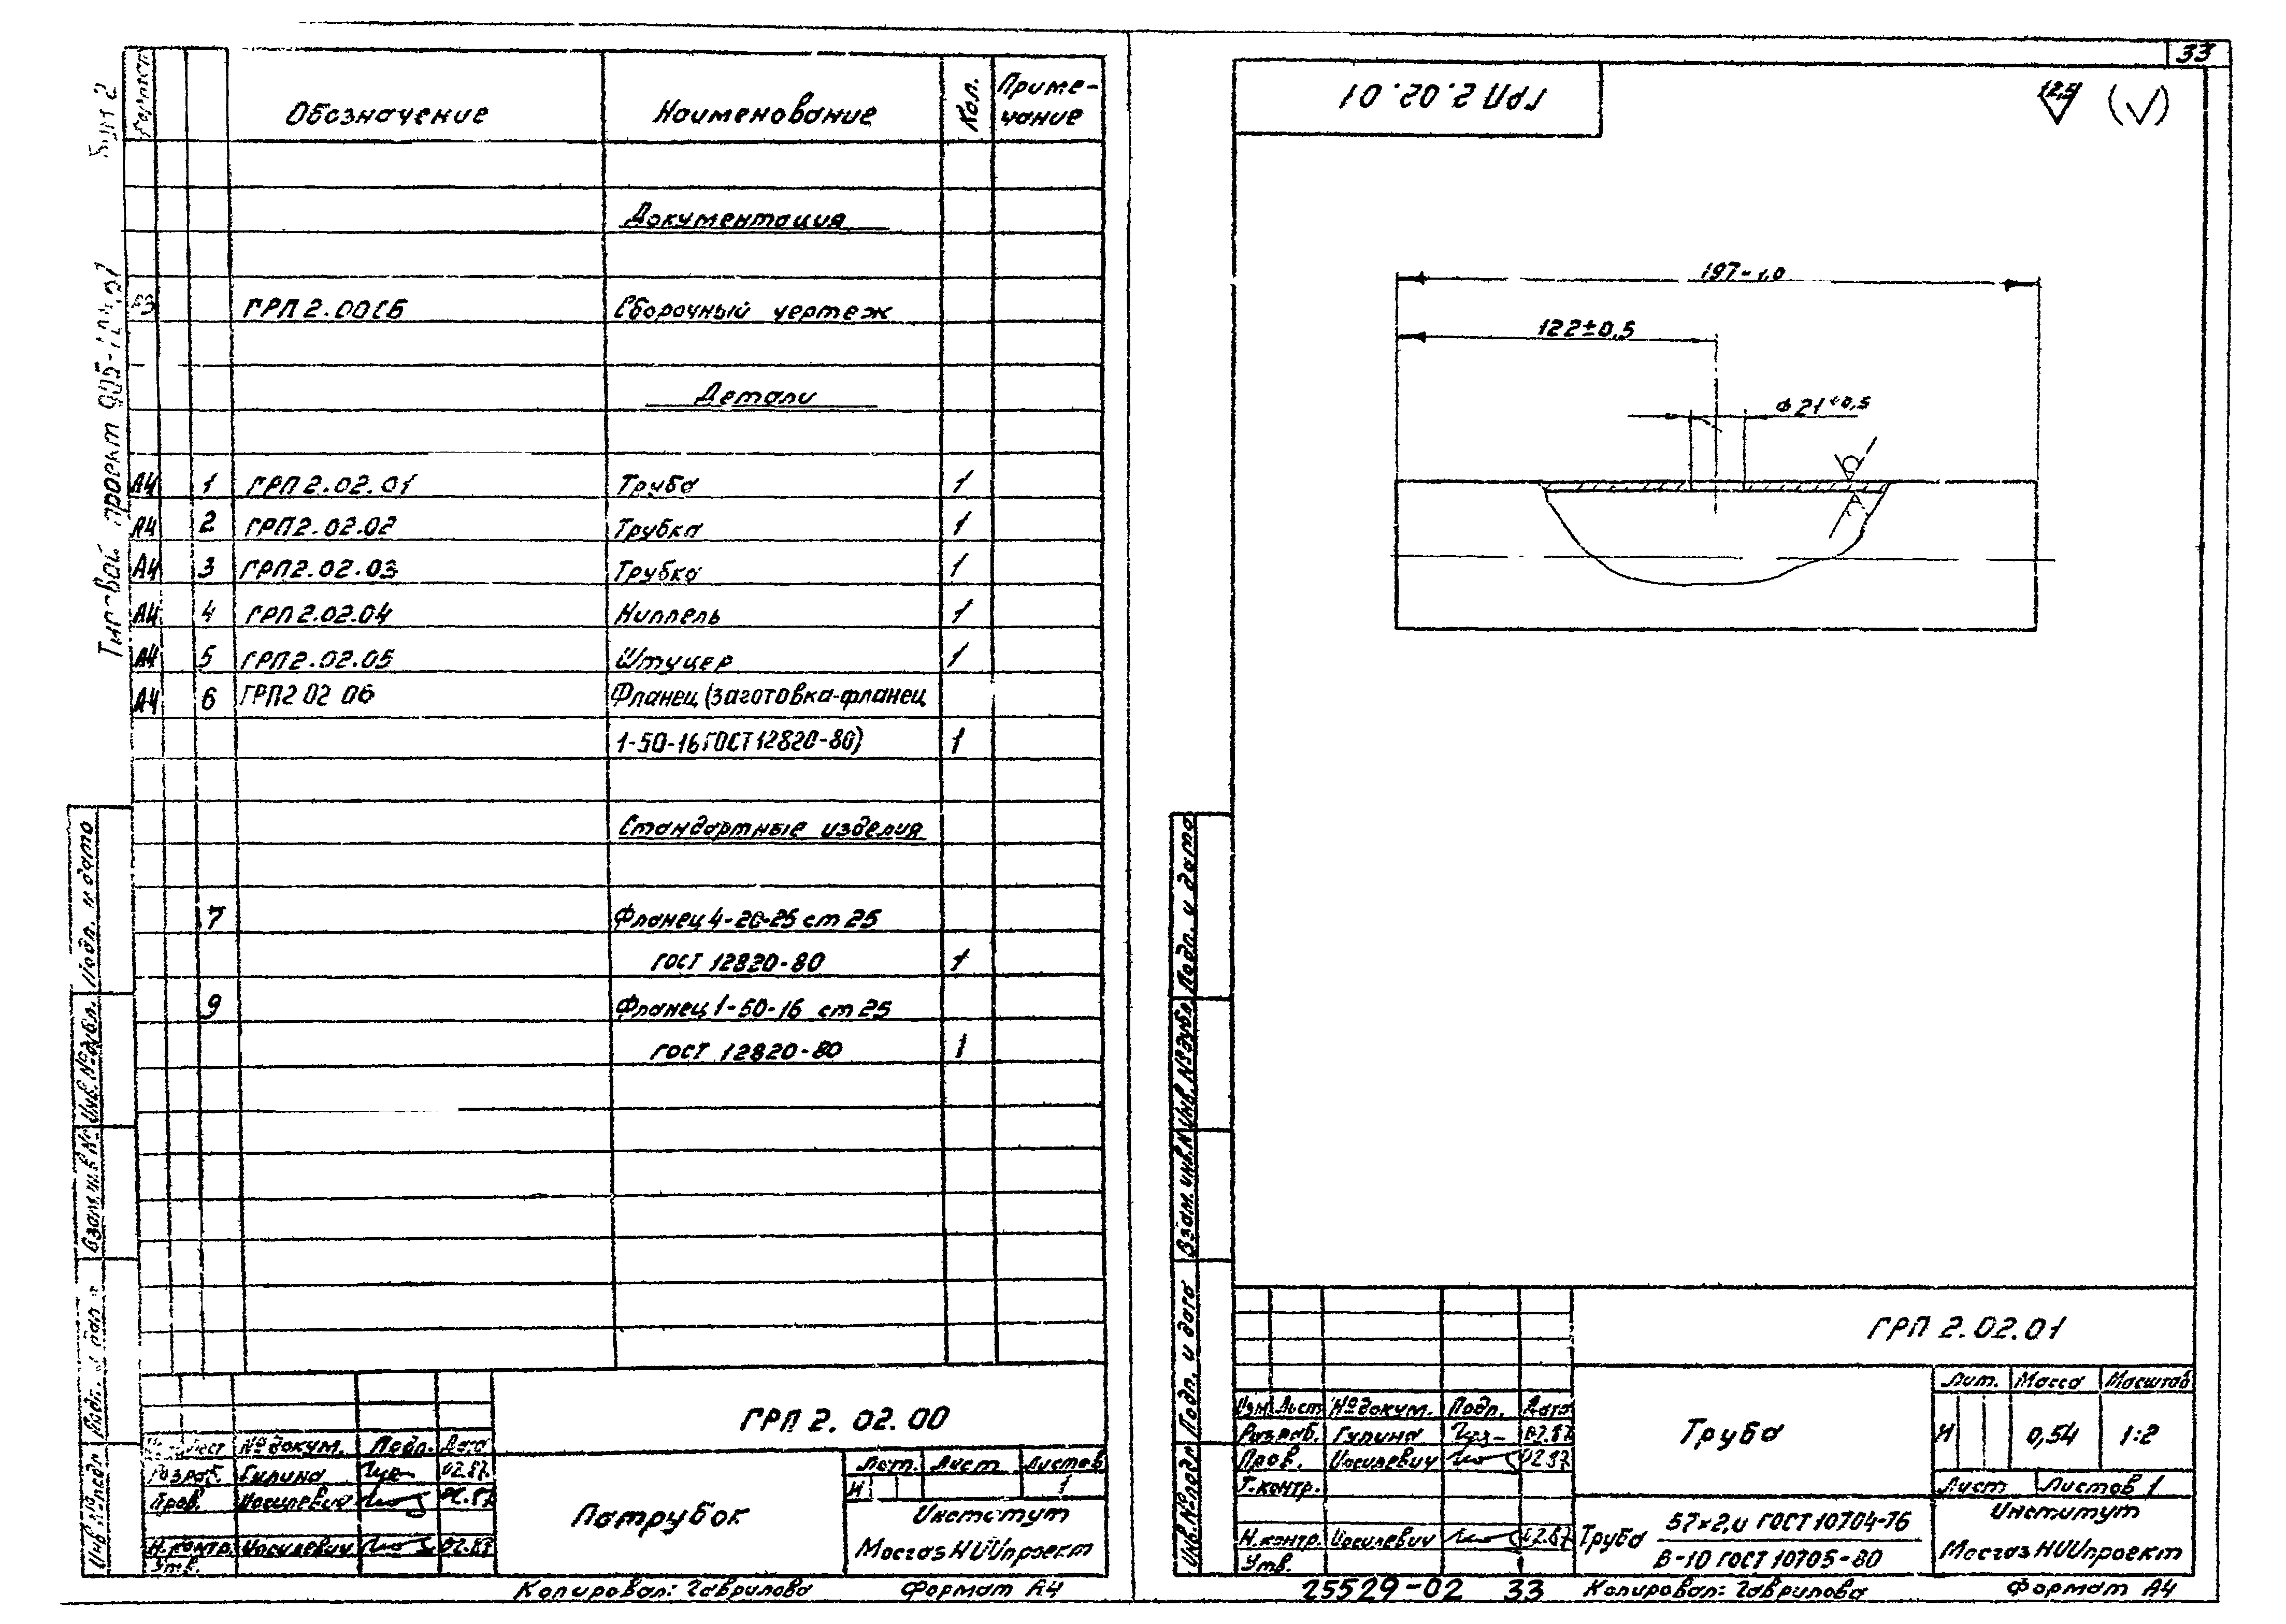 33
Формат Обозначение Наименование Кол. Приме-
чание
Документация
ГРП 2.00СБ Сборочный чертеж
Детали
А4 1 ГРП 2.02.01 Труба 1
А4 2 ГРП 2.02.02 Трубка 1
А4 3 ГРП 2.02.03 Трубка 1
А4 4 ГРП 2.02.04 Ниппель 1
А4 5 ГРП 2.02.05 Штуцер 1
А4 6 ГРП2 02 06 Фланец (заготовка-фланец
1-50-16 ГОСТ 12820-80) 1
Стандартные изделия
7 Фланец 4-20-25 ст 25
ГОСТ 12820-80 1
9 Фланец 1-50-16 ст 25
ГОСТ 12820-80 1
Типовой проект
Подп. и дата
Инв. № дубл.
Взам. инв. №
Подп. и дата
Инв. № подл.
ГРП 2. 02. 00
Лист № докум. Подп. Дата
Разраб. Гулина 02.87
Пров. Иосилевич 02.87
Н.контр. Иосилевич 02.87
Утв.
Патрубок
Лит. Лист Листов
И 1
Институт
МосгазНИИпроект
Копировал: Гаврилова Формат А4
ГРП 2.02.01
12,5 (√)
197-1,0
122±0,5
⌀21+0,5
Подп. и дата
Инв. № дубл.
Взам. инв. №
Подп. и дата
Инв. № подл.
ГРП 2.02.01
Изм Лист № докум. Подп. Дата
Разраб. Гулина 02.87
Пров. Иосилевич 02.87
Т.контр.
Н.контр. Иосилевич 02.87
Утв.
Труба
Лит. Масса Масштаб
И 0,54 1:2
Лист Листов 1
Труба 57×2,0 ГОСТ 10704-76
В-10 ГОСТ 10705-80
Институт
МосгазНИИпроект
25529-02 33 Копировал: Гаврилова Формат А4